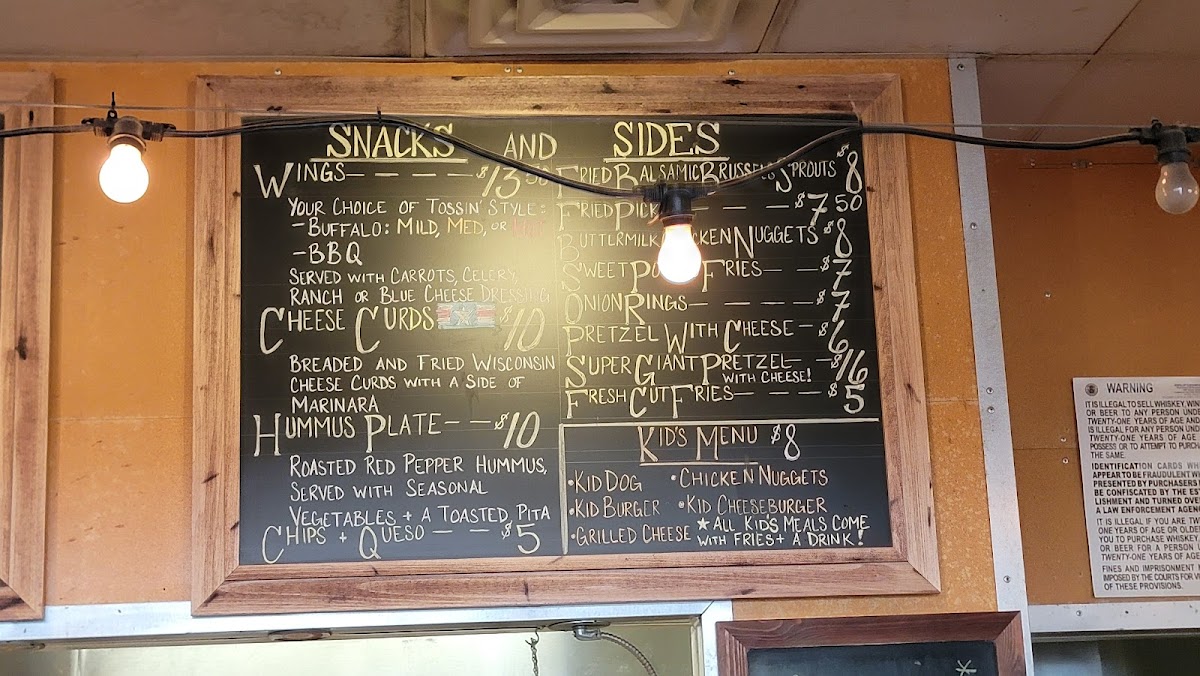 SNACKS AND SIDES
WINGS — — — — — $13.50
YOUR CHOICE OF TOSSIN' STYLE:
- BUFFALO: MILD, MED, OR
- BBQ
SERVED WITH CARROTS, CELERY,
RANCH OR BLUE CHEESE DRESSING
CHEESE CURDS $10
BREADED AND FRIED WISCONSIN
CHEESE CURDS WITH A SIDE OF
MARINARA
HUMMUS PLATE — — $10
ROASTED RED PEPPER HUMMUS,
SERVED WITH SEASONAL
VEGETABLES + A TOASTED PITA
CHIPS + QUESO — — — $5
FRIED BALSAMIC BRUSSELS SPROUTS $8
FRIED — — — $7.50
BUTTERMILK CHICKEN NUGGETS $8
SWEET FRIES — — $7
ONION RINGS — — — — — $7
PRETZEL WITH CHEESE — $6
SUPER GIANT PRETZEL — — $16
WITH CHEESE!
FRESH CUT FRIES — — — — $5
KID'S MENU $8
• KID DOG
• CHICKEN NUGGETS
• KID BURGER
• KID CHEESEBURGER
• GRILLED CHEESE
★ ALL KID'S MEALS COME
WITH FRIES + A DRINK!
WARNING
IT IS ILLEGAL TO SELL WHISKEY, WIN
OR BEER TO ANY PERSON UNDE
TWENTY-ONE YEARS OF AGE AND
IS ILLEGAL FOR ANY PERSON UND
TWENTY-ONE YEARS OF AGE
POSSESS OR TO ATTEMPT TO PURCHA
THE SAME.
IDENTIFICATION CARDS WH
APPEAR TO BE FRAUDULENT WH
PRESENTED BY PURCHASERS
BE CONFISCATED BY THE EST
LISHMENT AND TURNED OVER
A LAW ENFORCEMENT AGEN
IT IS ILLEGAL IF YOU ARE TW
ONE YEARS OF AGE OR OLDE
YOU TO PURCHASE WHISKEY,
OR BEER FOR A PERSON
TWENTY-ONE YEARS OF AGE
FINES AND IMPRISONMENT
IMPOSED BY THE COURTS FOR V
OF THESE PROVISIONS.